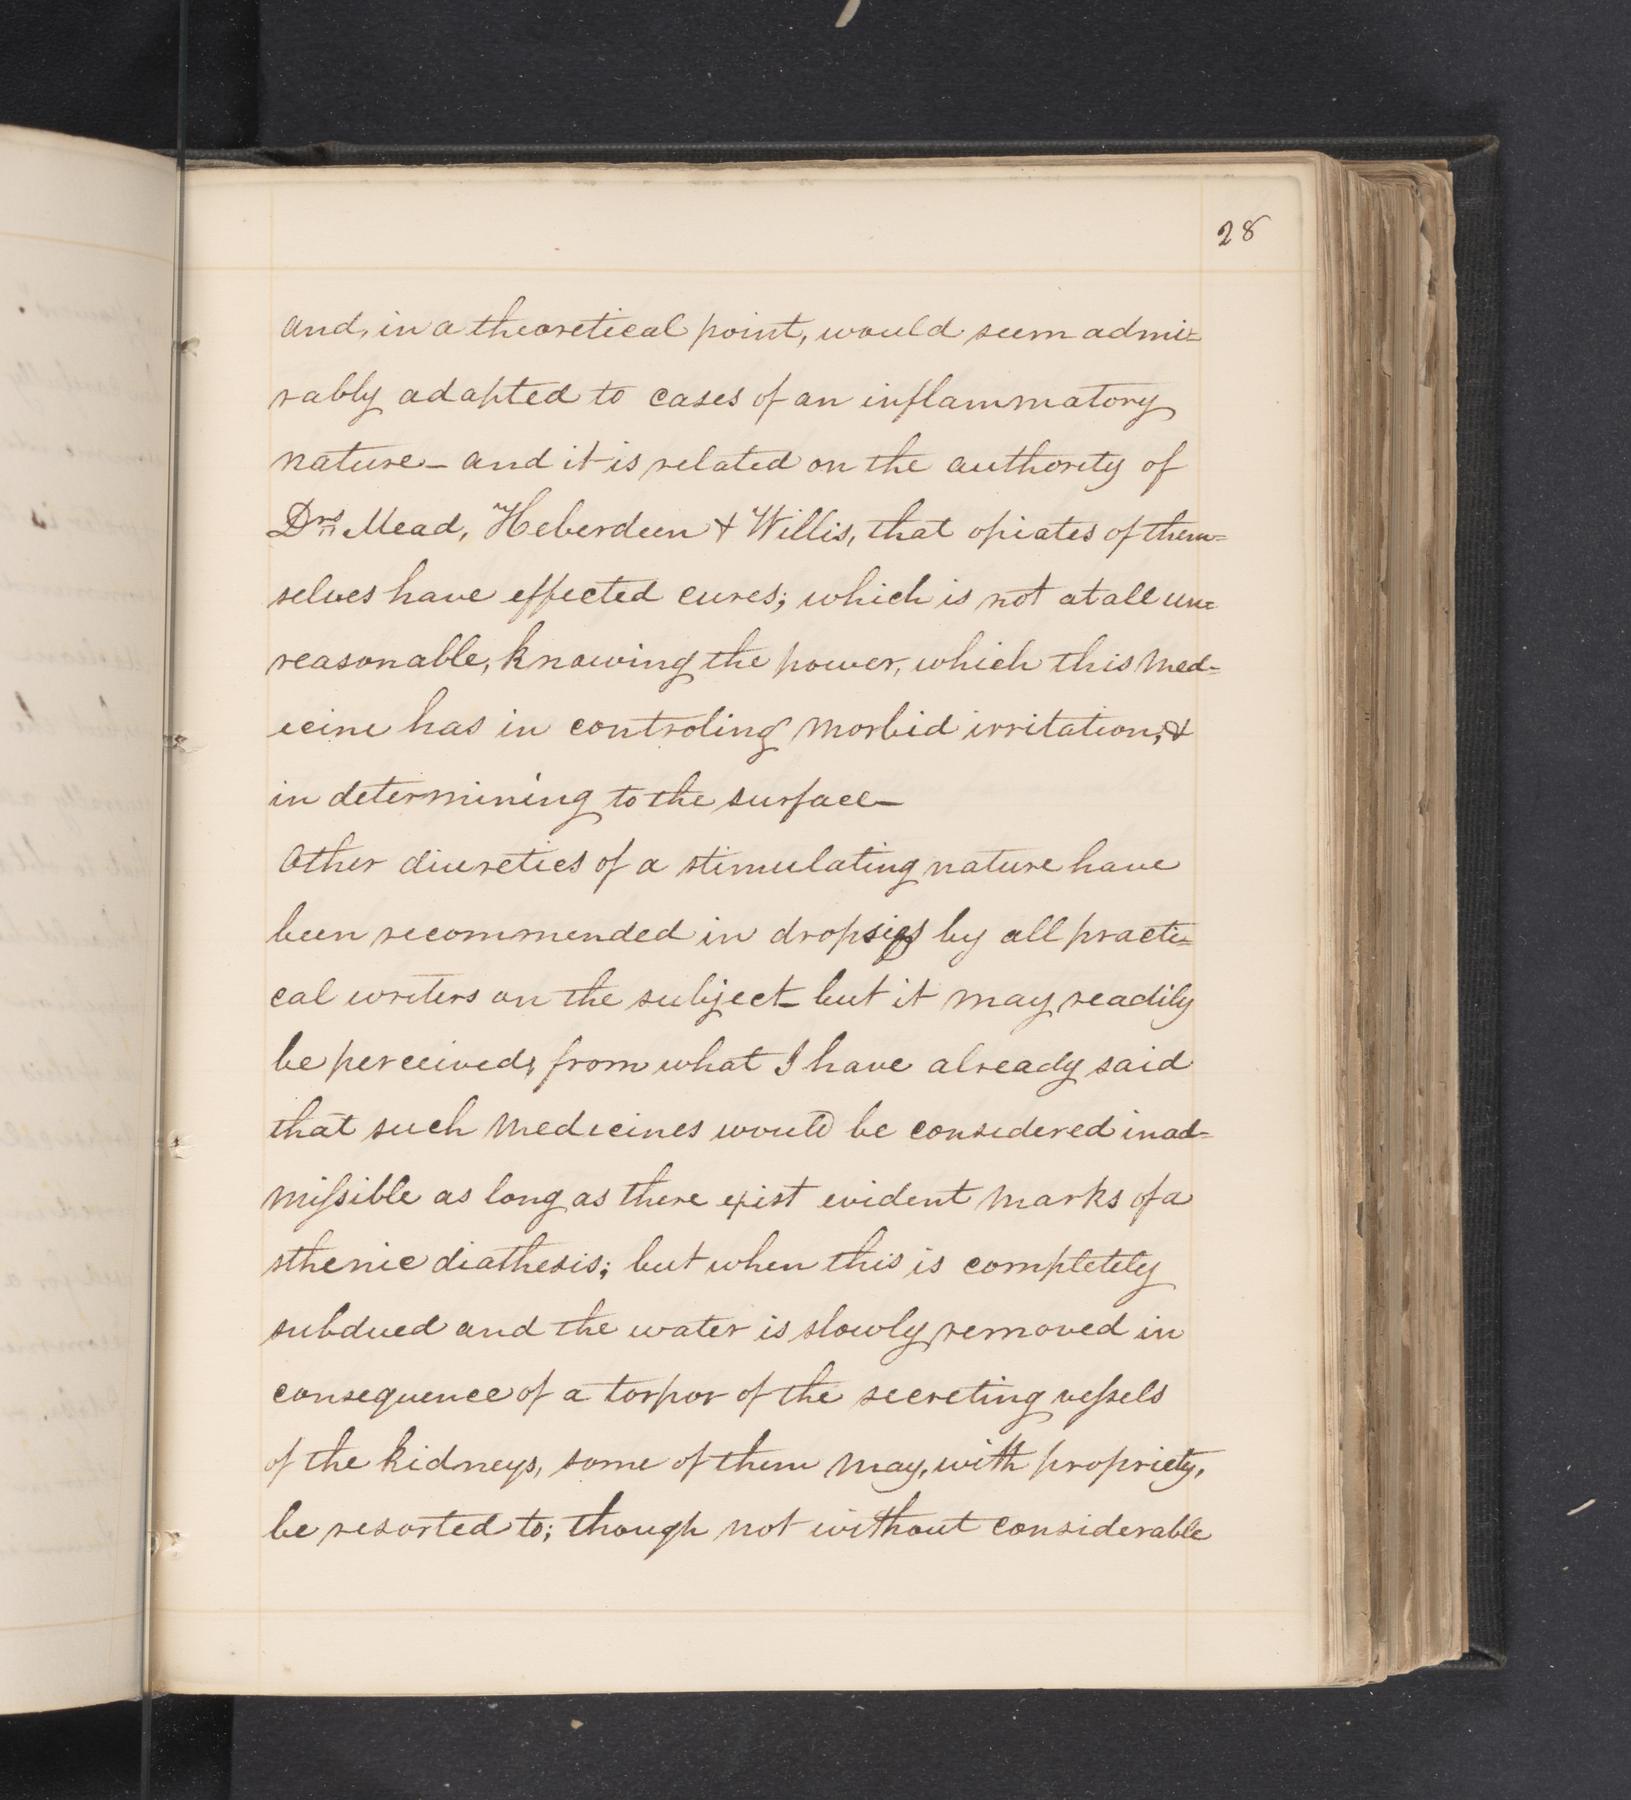 28
and, in a theoretical point, would seem admi=
rably adapted to cases of an inflammatory
nature - and it is related on the authority of
Drs Mead, Heberdeen & Willis, that opiates of them=
selves have effected cures; which is not at all un=
reasonable, knowing the power, which this med=
icine has in controling morbid irritation, &
in determining to the surface -
Other diuretics of a stimulating nature have
been recommended in dropsies by all practi=
cal writers on the subject - but it may readily
be perceived, from what I have already said
that such medicines would be considered inad=
missible as long as there exist evident marks of a
sthenic diathesis; but when this is completely
subdued and the water is slowly removed in
consequence of a torpor of the secreting vessels
of the kidneys, some of them may, with propriety,
be resorted to; though not without considerable